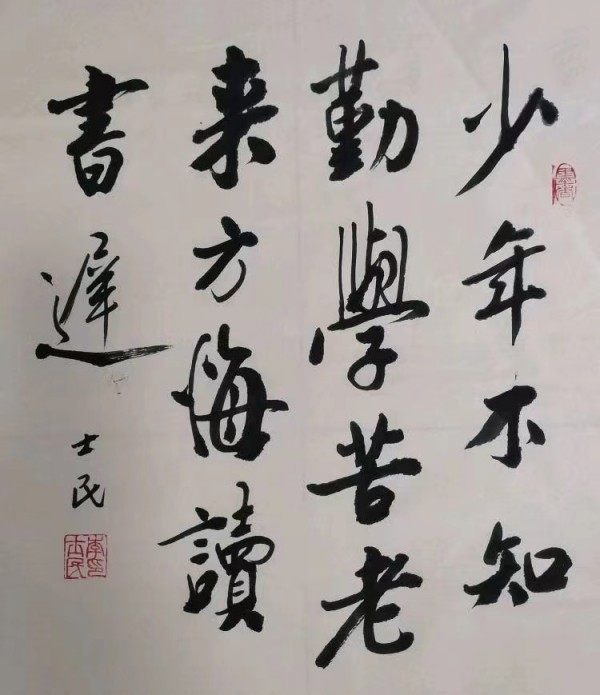 少年不知
勤學苦老
来方悔讀
書遲
士民